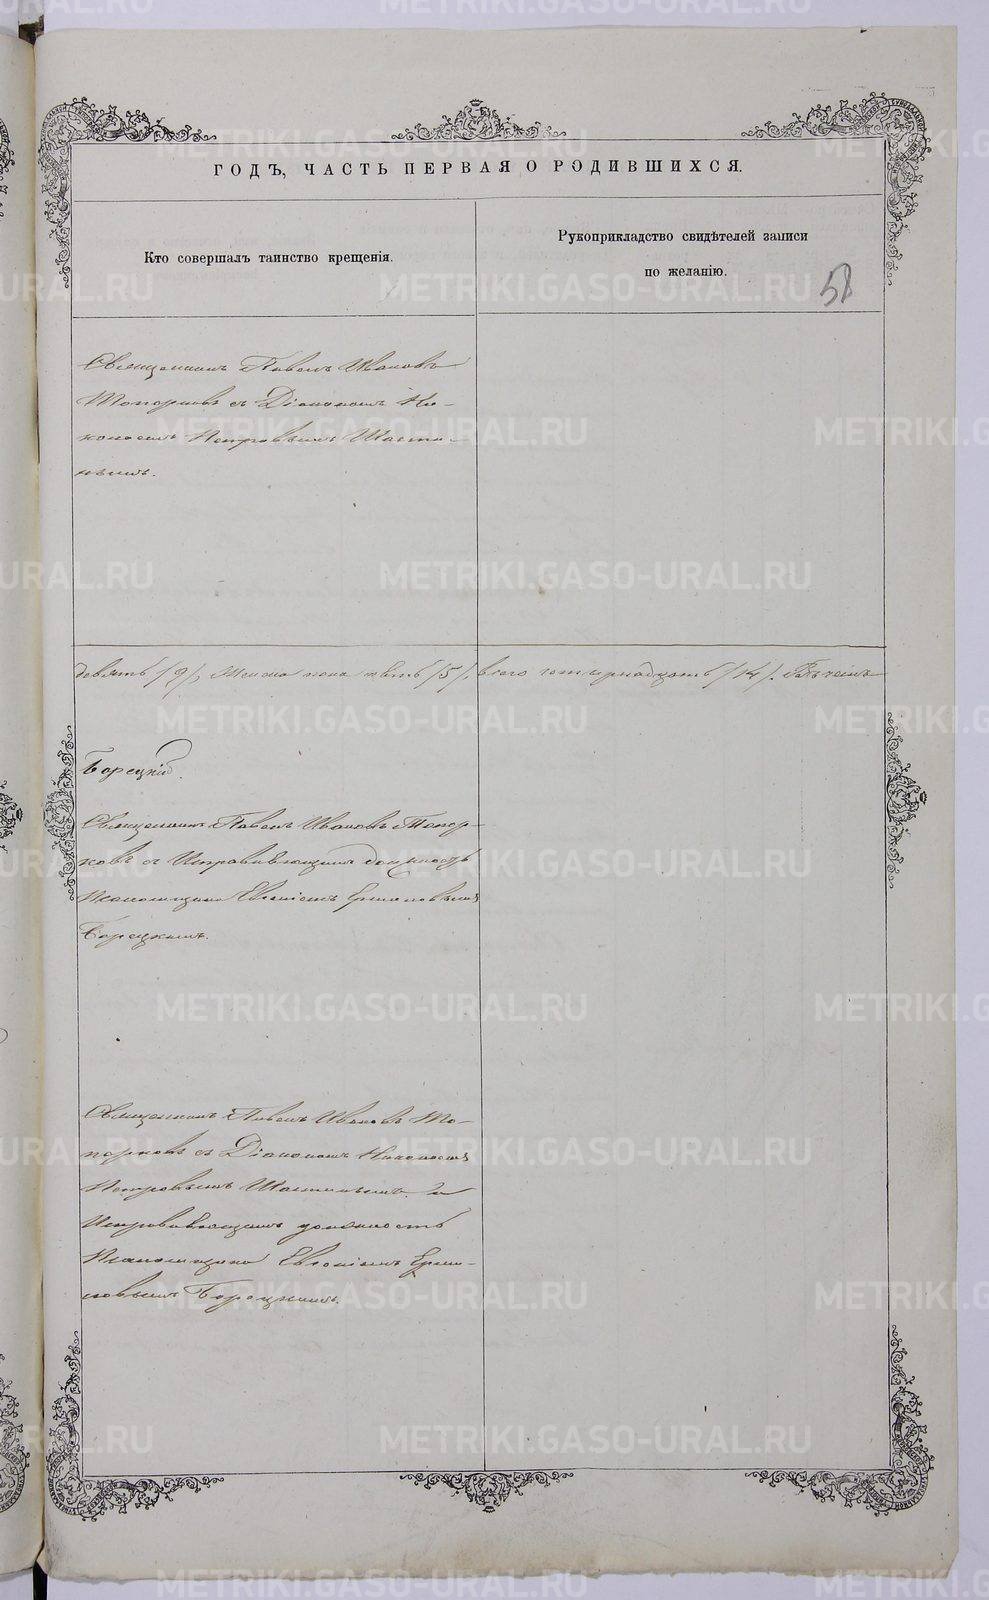 ГОДЪ, ЧАСТЬ ПЕРВАЯ О РОДИВШИХСЯ.
Кто совершалъ таинство крещенія.
Рукоприкладство свидѣтелей записи
по желанію.
58
Священникъ Павелъ Ивановъ
Топорковъ съ Діакономъ Ни-
Петровымъ
девять /9/, Женска пола пять /5/, всего четырнадцать /14/. Въ чемъ
Борецкій.
Священникъ Павелъ Ивановъ Топор-
ковъ съ Исправляющимъ должность
Псаломщика Евгеніемъ
Борецкимъ.
Священникъ Павелъ Ивановъ То-
порковъ съ Діакономъ
Петровымъ и
Исправляющимъ должность
Псаломщика Евгеніемъ
Борецкимъ.
METRIKI.GASO-URAL.RU